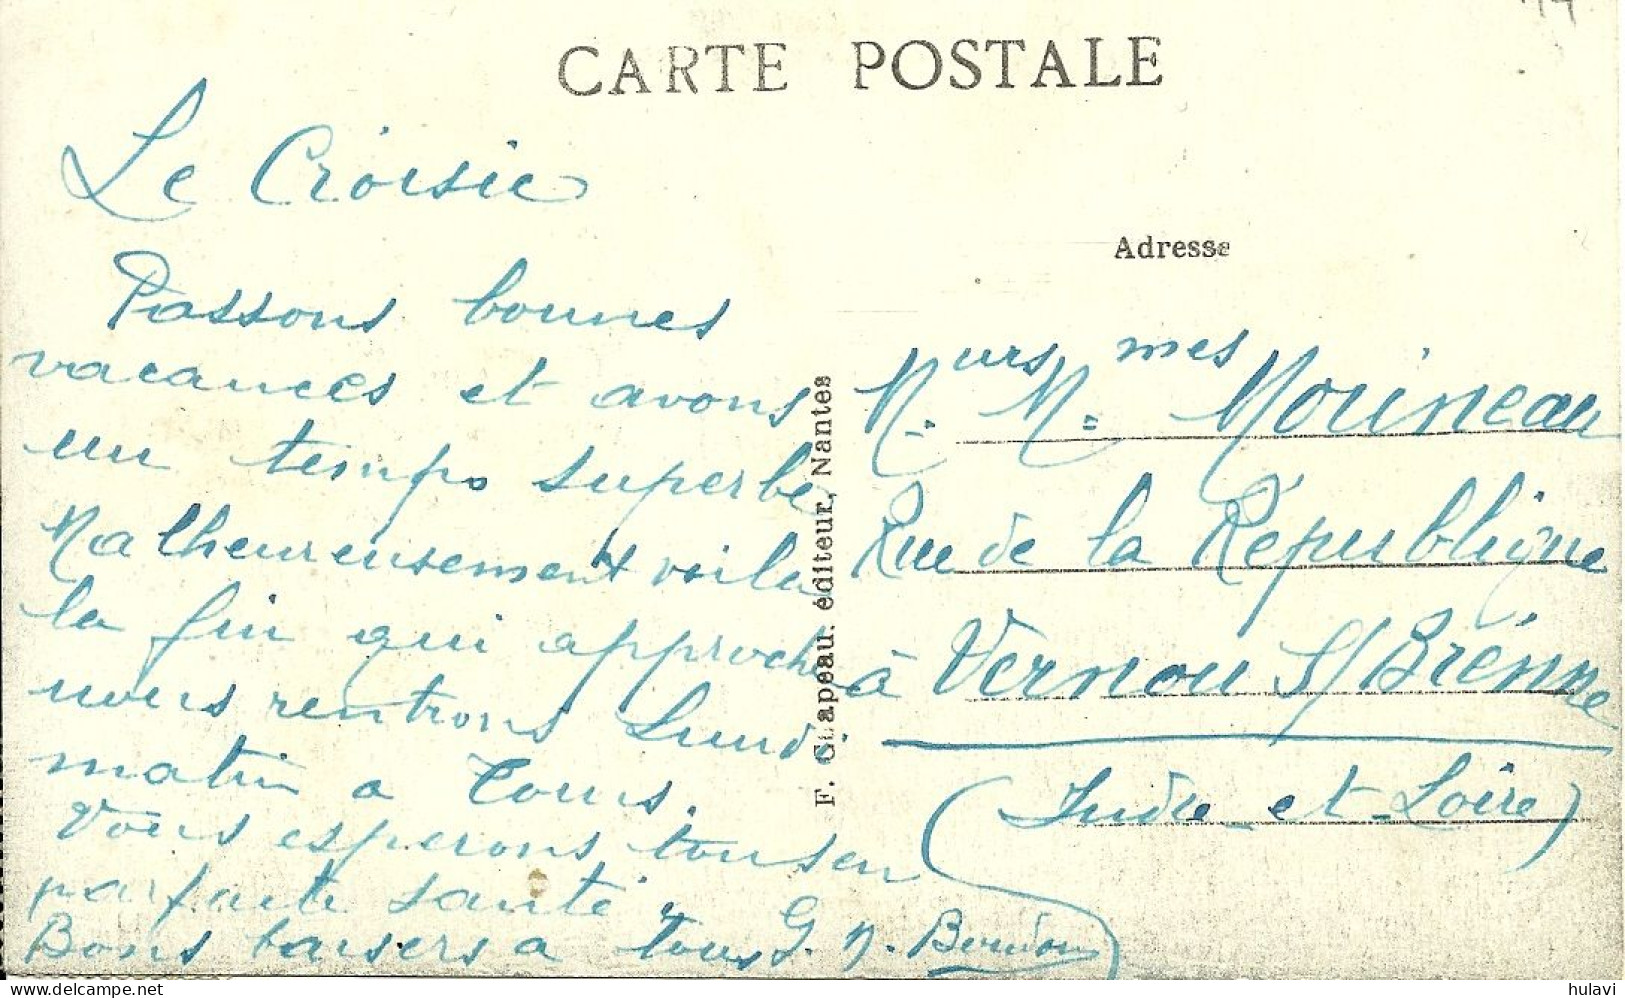 CARTE POSTALE
Le Croisic
Passons bonnes
vacances et avons
un temps superbe
Malheureusement voila
la fin qui approche
nous rentrons Lundi
matin a Tours.
Vous esperons tous en
parfaite santé
Bons baisers a tous G. N.
F. Chapeau. éditeur, Nantes
Adresse
M.urs M.mes Morineau
Rue de la République
à Vernou S/Brenne
(Indre-et-Loire)
hulavi